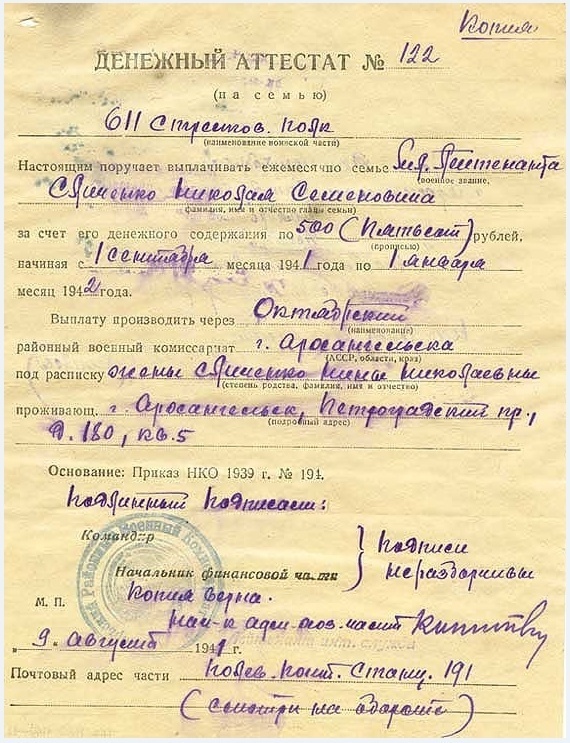 Копия
ДЕНЕЖНЫЙ АТТЕСТАТ № 122
(на семью)
611 Стрелков. полк
(наименование воинской части)
Настоящим поручает выплачивать ежемесячно семье Мл. Лейтенанта
(воинское звание,
Николая Семеновича
фамилия, имя и отчество главы семьи)
за счет его денежного содержания по 500 (Пятьсот) рублей,
(прописью)
начиная с 1 сентября месяца 1941 года по 1 января
месяц 1942 года.
Выплату производить через Октябрьский
(наименование)
районный военный комиссариат г. Архангельска
(АССР, области, края)
под расписку жены Нины Николаевны
(степень родства, фамилия, имя и отчество)
проживающ. г. Архангельск, Петроградский пр.,
(подробный адрес)
д. 180, кв. 5
Основание: Приказ НКО 1939 г. № 191.
Подлинный подписали:
Командир
Подписи
Начальник финансовой части
неразборчивы
М. П.
Копия верна.
Нач-к адм. хоз. части
„ 9 . август 1941 г.
Почтовый адрес части Полев. Почт. Станц. 191
(смотри на обороте)